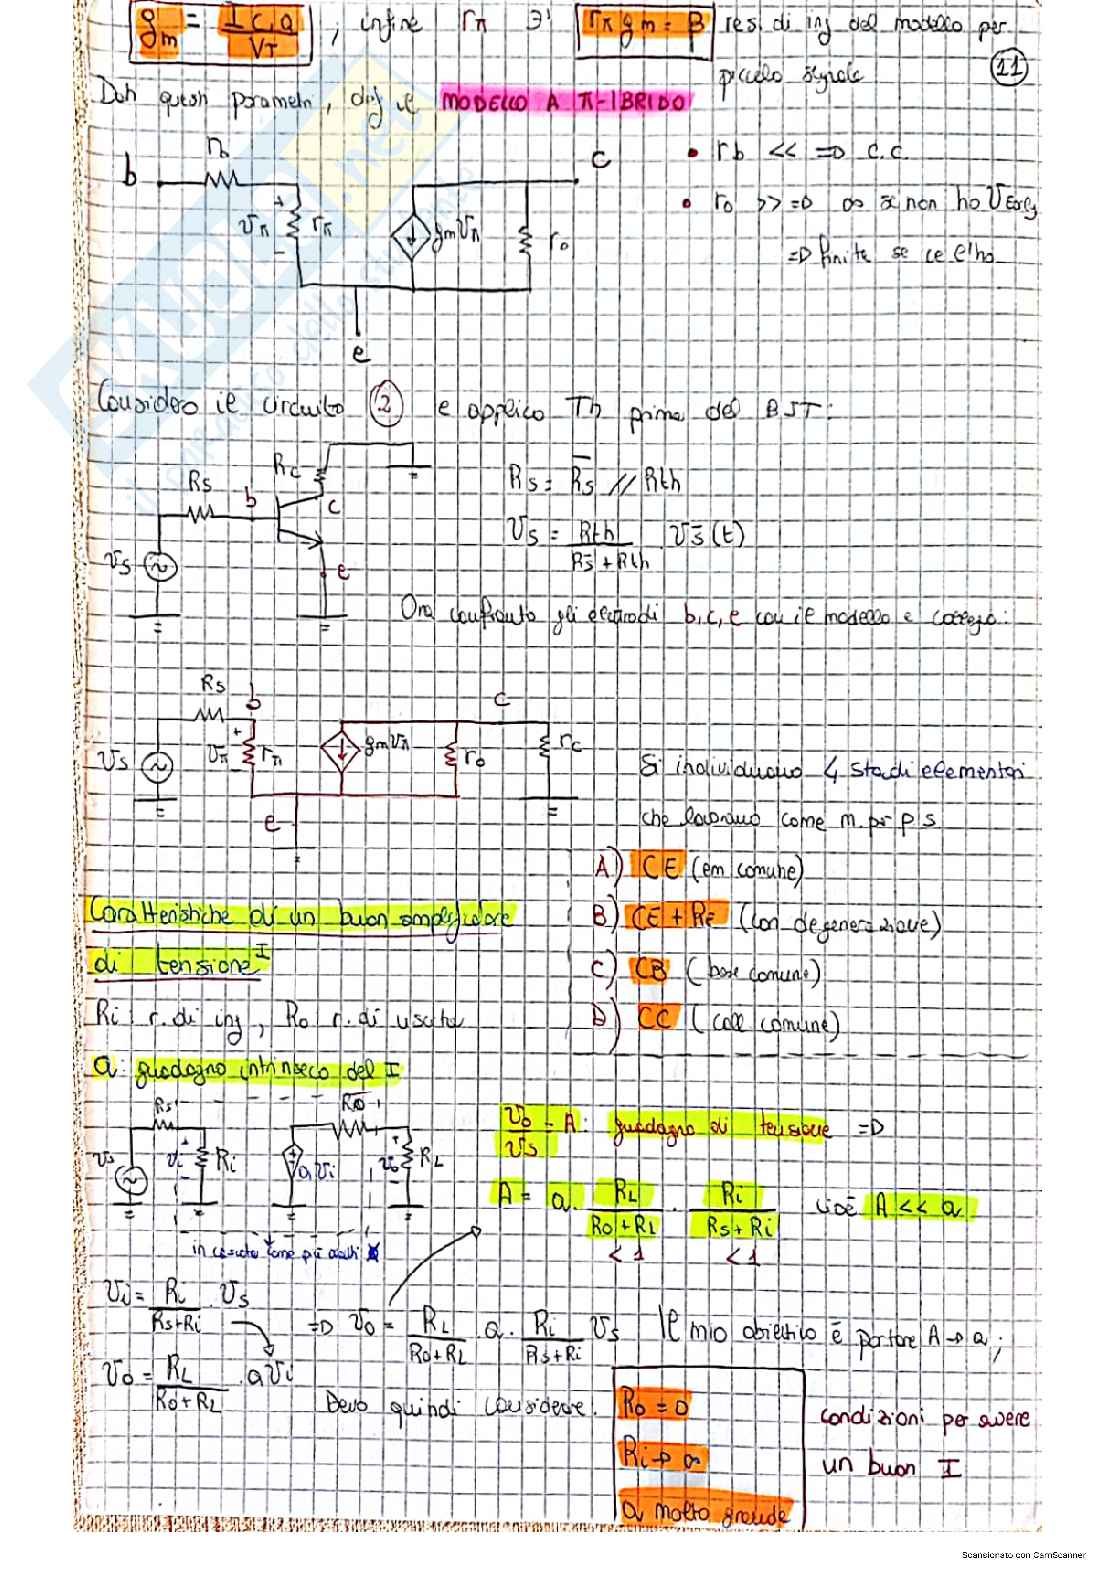 gm = IC,Q / VT , infine rπ ∋' rπ gm = β res. di ing del modello per
piccolo segnale
11
Dati questi parametri, def il MODELLO A π-IBRIDO
rb
b
c
vπ rπ gmvπ ro
e
• rb << => c.c.
• ro >> => ∞ se non ho VEarly
=> finite se ce l'ho
Considero il circuito 2 e applico Th prima del BJT:
Rs Rc b c e vs
Rs = R̅s // Rth
vs = Rth / (R̅s + Rth) v̅s(t)
Ora confronto gli elettrodi b, c, e con il modello e correggo:
Rs b c
vs vπ rπ gmvπ ro rc
e
Si individuano 4 stadi elementari
che lavorano come m. per p s
A) CE (em comune)
B) CE + RE (con degenerazione)
C) CB (base comune)
D) CC (coll comune)
Caratteristiche di un buon amplificatore
di tensione I
Ri r. di ing, Ro r. di uscita
a: guadagno intrinseco del I
Rs Ro
vs vi Ri avi vo RL
in cascata come più stadi
vo / vs = A: guadagno di tensione =>
A = a. RL / (Ro+RL) . Ri / (Rs+Ri) cioè A << a
<1 <1
vi = Ri / (Rs+Ri) . vs
=> vo = RL / (Ro+RL) a. Ri / (Rs+Ri) vs Il mio obiettivo è portare A → a;
vo = RL / (Ro+RL) . avi
Devo quindi considerare. Ro = 0
Ri → ∞
a molto grande
condizioni per avere
un buon I
Scansionato con CamScanner